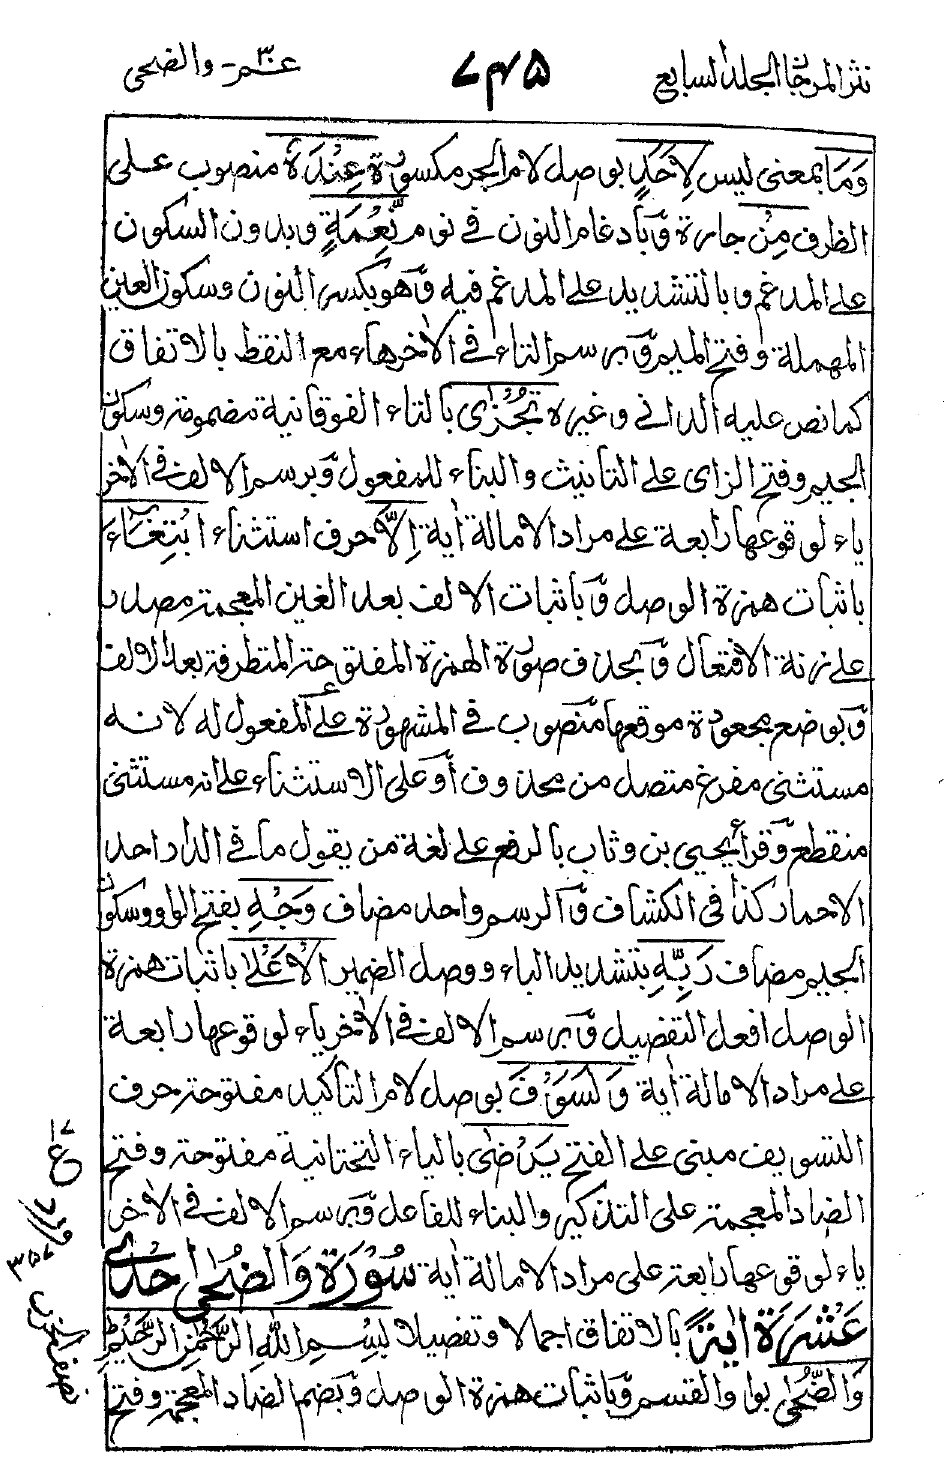 نثر المرجان المجلد السابع
٧٤٥
عم ٣٠ - والضحى
وَمَا بمعنى ليس لِاَحَدٍ بوصل لام الجر مكسورة عِنْدَهٗ منصوب على
الظرف مِنْ جارة وبادغام النون في نون نِّعْمَةٍ وبدون السكون
على المدغم وبالتشديد على المدغم فيه وهو بكسر النون وسكون العين
المهملة وفتح الميم وبرسم التاء في الاخر هاء مع النقط بالاتفاق
كما نص عليه الداني وغيره تُجْزٰى بالتاء الفوقانية مضمومة وسكون
الجيم وفتح الزاى على التانيث والبناء للمفعول وبرسم الالف في الاخر
ياء لوقوعها رابعة على مراد الامالة اية اِلَّا حرف استثناء ابْتِغَآءَ
باثبات همزة الوصل وباثبات الالف بعد الغين المعجمة مصدر
على زنة الافتعال وبحذف صورة الهمزة المفتوحة المتطرفة بعد الالف
وبوضع مجعودة موقعها منصوب في المشهورة على المفعول له لانه
مستثنى مفرغ متصل من محذوف أو على الاستثناء على انه مستثنى
منقطع وقرأ يحيى بن وثاب بالرفع على لغة من يقول ما في الدار احد
الاحمار كذا في الكشاف والرسم واحد مضاف وَجْهِ بفتح الواو وسكون
الجيم مضاف رَبِّهِ بتشديد الباء ووصل الضمير الْاَعْلٰى باثبات همزة
الوصل افعل التفضيل وبرسم الالف في الاخر ياء لوقوعها رابعة
على مراد الامالة اية وَلَسَوْفَ بوصل لام التأكيد مفتوحة حرف
التسويف مبني على الفتح يَرْضٰى بالياء التحتانية مفتوحة وفتح
الضاد المعجمة على التذكير والبناء للفاعل وبرسم الالف في الاخر
ياء لوقوعها رابعة على مراد الامالة اية سُوْرَةُ وَالضُّحٰى احدى
عَشْرَةَ اٰيَةً بالاتفاق اجمالا وتفصيلا بِسْمِ اللّٰهِ الرَّحْمٰنِ الرَّحِيْمِ
وَالضُّحٰى بواو القسم وباثبات همزة الوصل وبضم الضاد المعجمة وفتح
ع
نصف الحزب